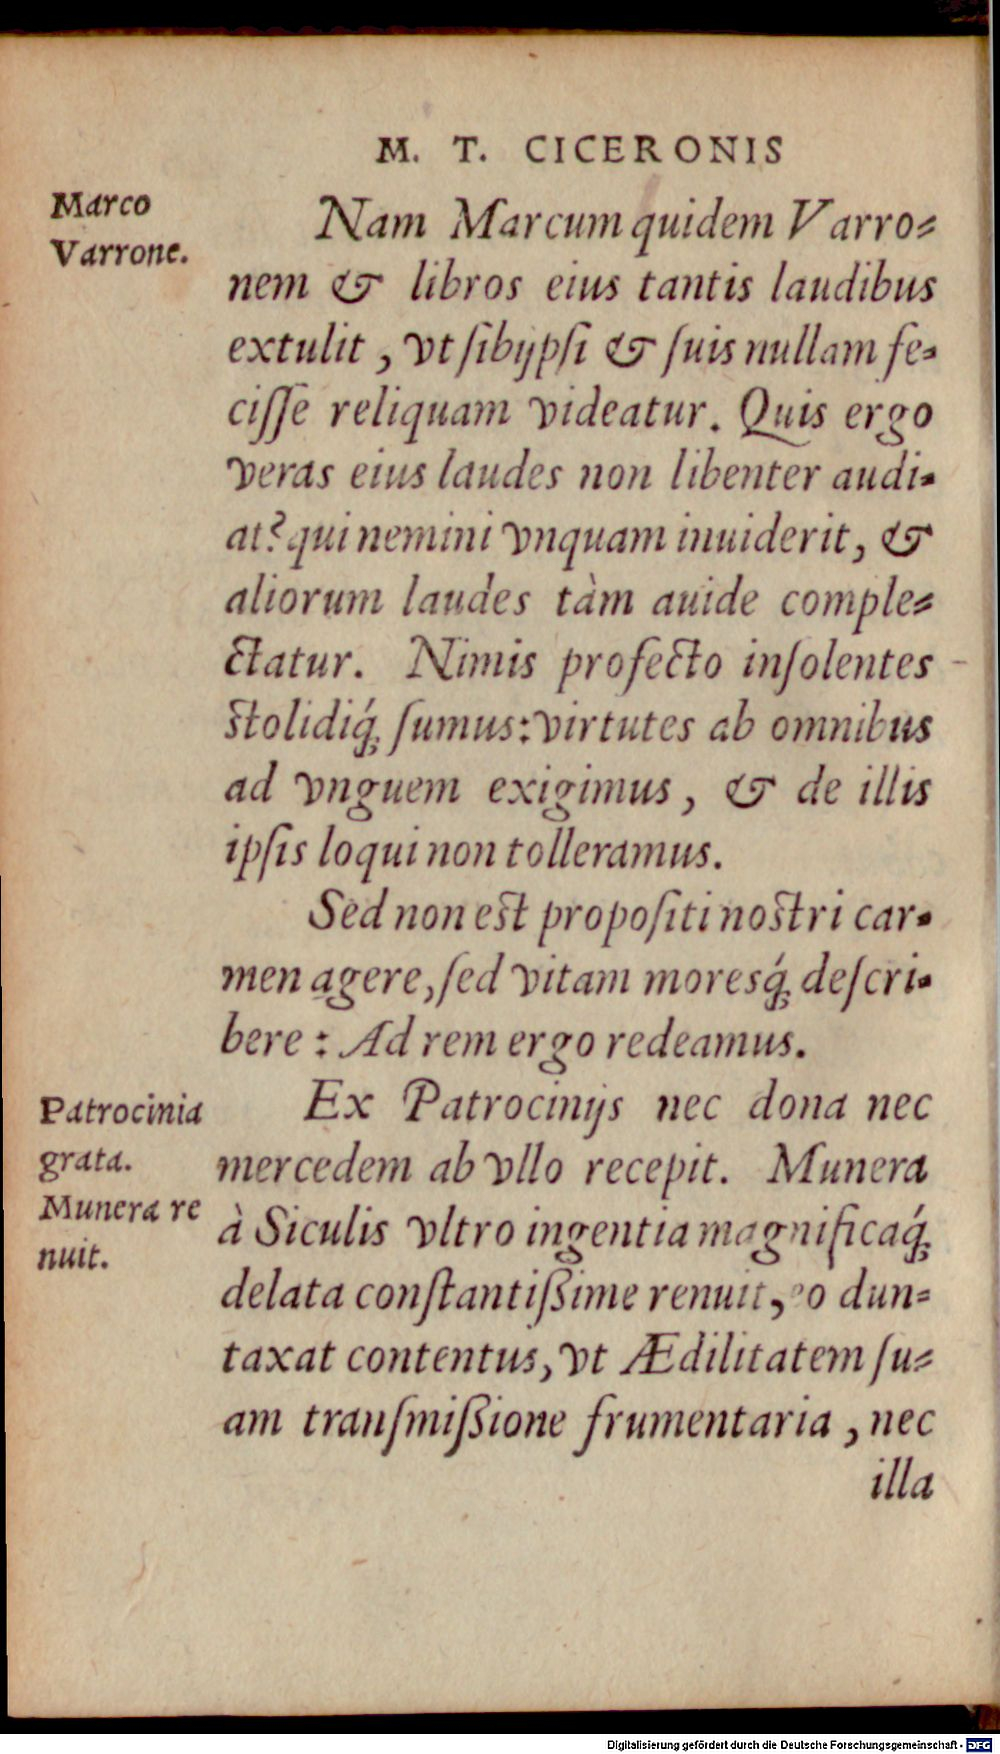 M. T. CICERONIS
Marco
Varrone.
Nam Marcum quidem Varro⸗
nem & libros eius tantis laudibus
extulit, vt ſibijpſi & ſuis nullam fe⸗
ciſſe reliquam videatur. Quis ergo
veras eius laudes non libenter audi⸗
at? qui nemini vnquam inuiderit, &
aliorum laudes tàm auide comple⸗
ctatur. Nimis profecto inſolentes
ſtolidiq́; ſumus: virtutes ab omnibus
ad vnguem exigimus, & de illis
ipſis loqui non tolleramus.
Sed non eſt propoſiti noſtri car⸗
men agere, ſed vitam moresq́; deſcri⸗
bere: Ad rem ergo redeamus.
Patrocinia
grata.
Munera re
nuit.
Ex Patrocinijs nec dona nec
mercedem ab vllo recepit. Munera
à Siculis vltro ingentia magnificaq́;
delata conſtantißime renuit, eo dun⸗
taxat contentus, vt Ædilitatem ſu⸗
am tranſmißione frumentaria, nec
illa
Digitalisierung gefördert durch die Deutsche Forschungsgemeinschaft - DFG